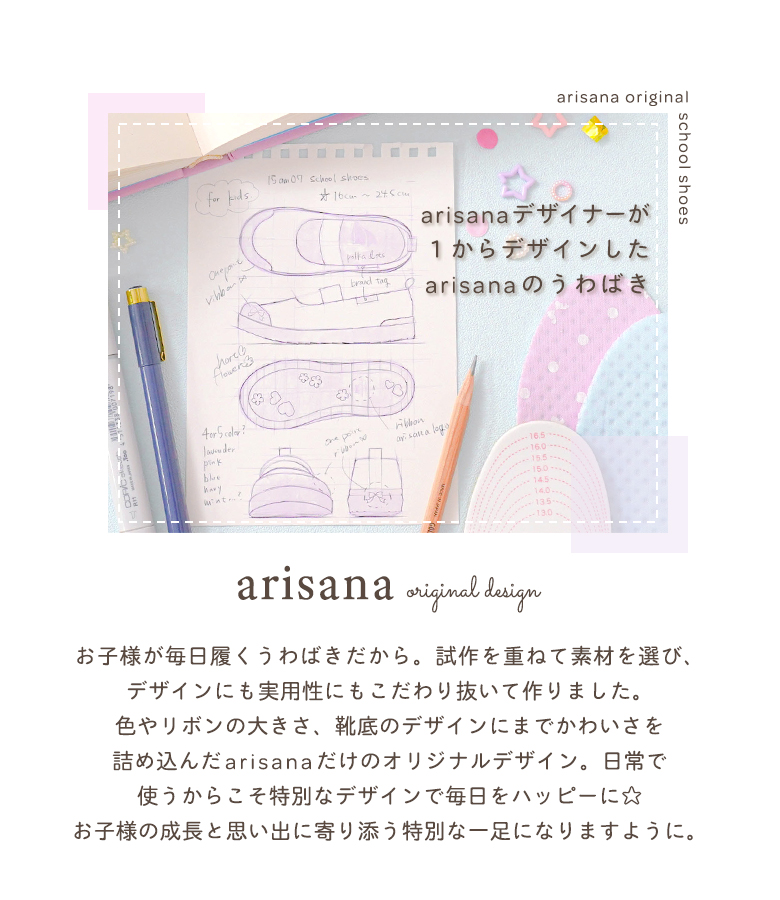 arisana original
school shoes
15am07 school shoes
for kids
16cm ～ 24.5cm
arisanaデザイナーが
１からデザインした
arisanaのうわばき
brand tag
one point
ribbon
4or5color?
lavender
pink
blue
navy
mint...?
one point
ribbon
ribbon
arisana logo
16.5
16.0
15.5
15.0
14.5
14.0
13.5
13.0
arisana original design
お子様が毎日履くうわばきだから。試作を重ねて素材を選び、
デザインにも実用性にもこだわり抜いて作りました。
色やリボンの大きさ、靴底のデザインにまでかわいさを
詰め込んだarisanaだけのオリジナルデザイン。日常で
使うからこそ特別なデザインで毎日をハッピーに☆
お子様の成長と思い出に寄り添う特別な一足になりますように。